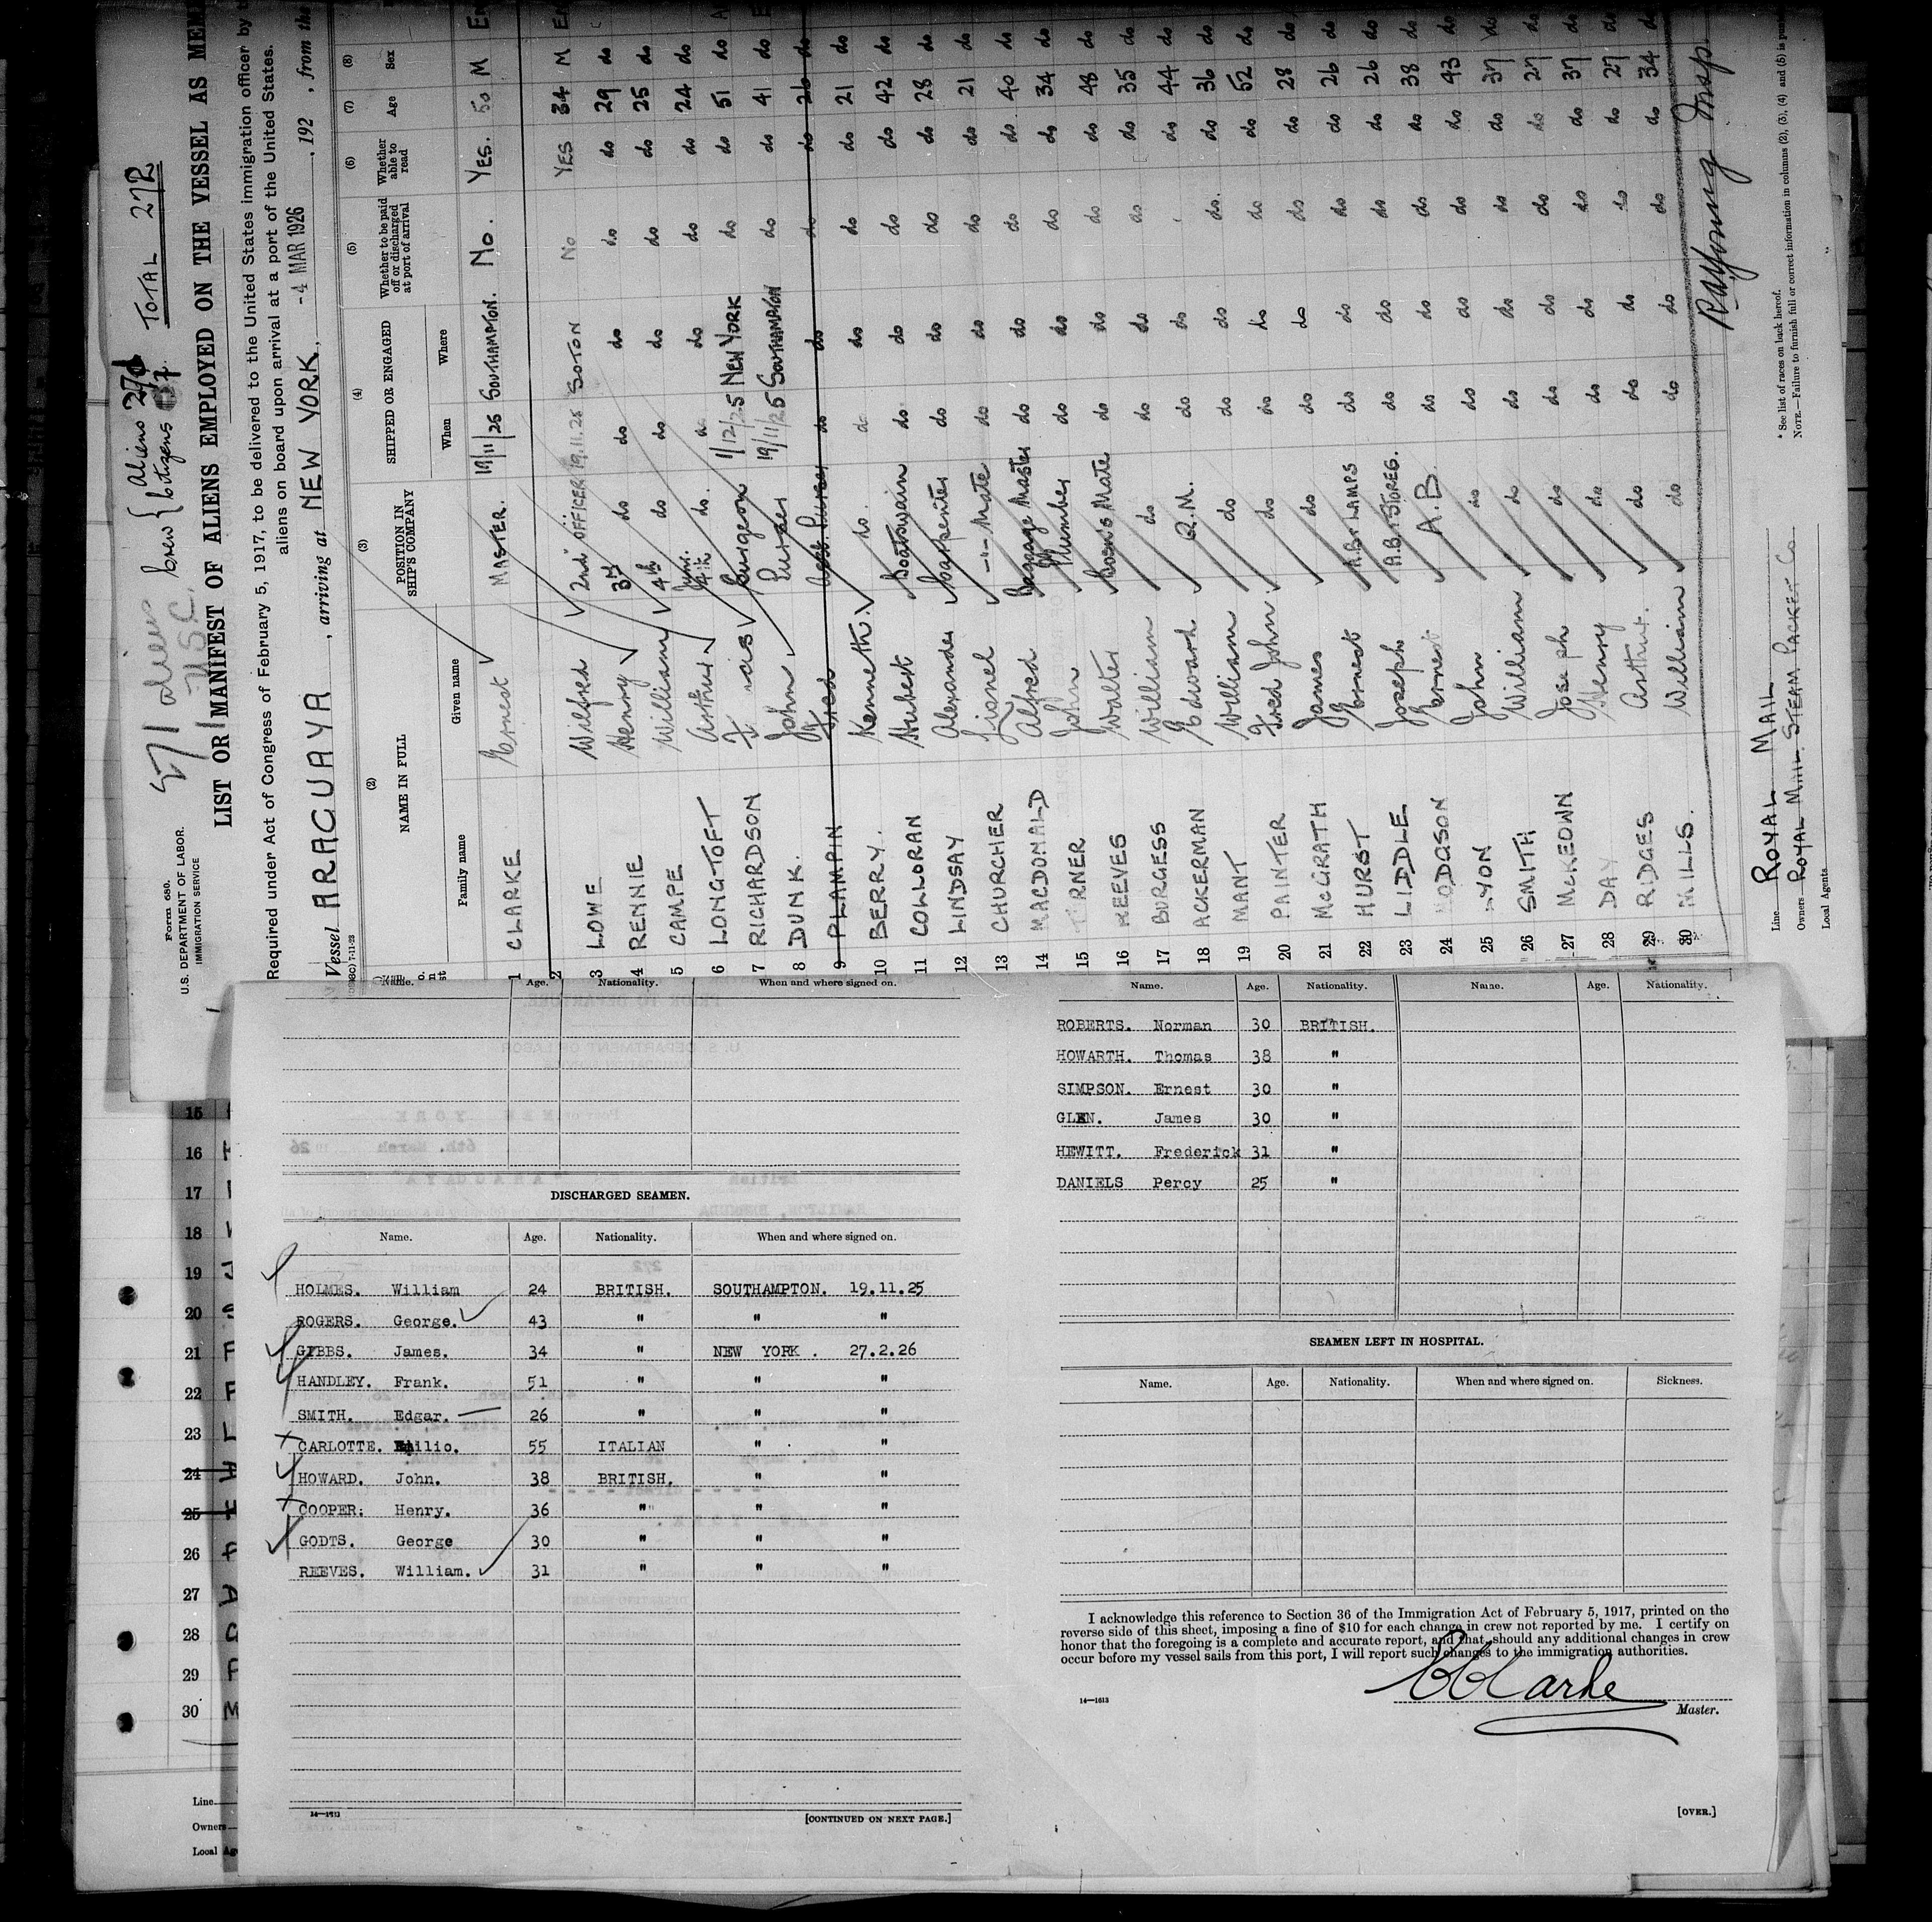 Form 680.
U.S. DEPARTMENT OF LABOR
IMMIGRATION SERVICE
571 aliens
7 USC.
Crew { Aliens
Citizens 7.
TOTAL 272
LIST OR MANIFEST OF ALIENS EMPLOYED ON THE VESSEL AS MEM
Required under Act of Congress of February 5, 1917, to be delivered to the United States immigration officer by t
aliens on board upon arrival at a port of the United States.
Vessel ARAGUAYA, arriving at NEW YORK, -4 MAR 1926, 192 , from the
(2) (3) (4) (5) (6) (7) (8)
NAME IN FULL POSITION IN SHIP'S COMPANY SHIPPED OR ENGAGED Whether to be paid off or discharged at port of arrival Whether able to read Age Sex
Family name Given name When Where
1 CLARKE Ernest MASTER. 19/11/25 SOUTHAMPTON. No. YES. 50 M
2
3 LOWE Wilfred 2nd OFFICER 19.11.25 SOTON No YES 34 M
4 RENNIE Henry 3rd do do do do do 29 do
5 CAMPE William 4th do do do do do 25 do
6 LONGTOFT Arthur Jun. 4th do. do do do do 24 do
7 RICHARDSON Surgeon 1/12/25 NEW YORK do do 51 do
8 DUNK. John Purser 19/11/25 SOUTHAMPTON do do 41 do
9 PLAMPIN Fred Asst. Purser do do do do 26 do
10 BERRY. Kenneth. do. do do do do 21 do
11 COLLORAN Hubert Boatswain do do do do 42 do
12 LINDSAY Alexander Carpenter do do do do 28 do
13 CHURCHER Lionel -"- Mate do do do do 21 do
14 MACDONALD Alfred Baggage Master do do do do 40 do
15 John Plumber do do do do 34 do
16 REEVES Walter Bosn's Mate do do do do 48 do
17 BURGESS William do do do do do 35 do
18 ACKERMAN Edward Q.M. do do do 44 do
19 MANT William do do do do. do 36 do
20 PAINTER Fred John. do do do do do 52 do
21 McGRATH James do do do do do 28 do
22 HURST Ernest A.B. & LAMPS do do do do 26 do
23 LIDDLE Joseph A.B. & STOREG. do do do do 26 do
24 HODGSON Ernest A.B. do do do do 38 do
25 LYON John do do do do do 43 do
26 SMITH William do do do do do 37 do
27 McKEOWN Joseph do do do do do 27 do
28 DAY Henry do do do do do 37 do
29 RIDGES Arthur. do do do do do 27 do
30 MILLS. William do do do do do 34 do
Line ROYAL MAIL
Owners ROYAL MAIL STEAM PACKET Co
Local Agents
* See list of races on back hereof.
NOTE.—Failure to furnish full or correct information in columns (2), (3), (4) and (5) is pun
Name. Age. Nationality. When and where signed on.
DISCHARGED SEAMEN.
Name. Age. Nationality. When and where signed on.
HOLMES. William 24 BRITISH. SOUTHAMPTON. 19.11.25
ROGERS. George. 43 " " "
GIBBS. James. 34 " NEW YORK . 27.2.26
HANDLEY. Frank. 51 " " "
SMITH. Edgar. 26 " " "
CARLOTTE. Emilio. 55 ITALIAN " "
HOWARD. John. 38 BRITISH. " "
COOPER: Henry. 36 " " "
GODTS. George 30 " " "
REEVES. William. 31 " " "
14—1613
[CONTINUED ON NEXT PAGE.]
Name. Age. Nationality. Name. Age. Nationality.
ROBERTS. Norman 30 BRITISH.
HOWARTH. Thomas 38 "
SIMPSON. Ernest 30 "
GLEN. James 30 "
HEWITT. Frederick 31 "
DANIELS Percy 25 "
SEAMEN LEFT IN HOSPITAL.
Name. Age. Nationality. When and where signed on. Sickness.
I acknowledge this reference to Section 36 of the Immigration Act of February 5, 1917, printed on the
reverse side of this sheet, imposing a fine of $10 for each change in crew not reported by me. I certify on
honor that the foregoing is a complete and accurate report, and that should any additional changes in crew
occur before my vessel sails from this port, I will report such changes to the immigration authorities.
E Clarke
14—1613
Master.
[OVER.]
15
16
17
18
19
20
21
22
23
24
25
26
27
28
29
30
Line
Owners
Local Ag